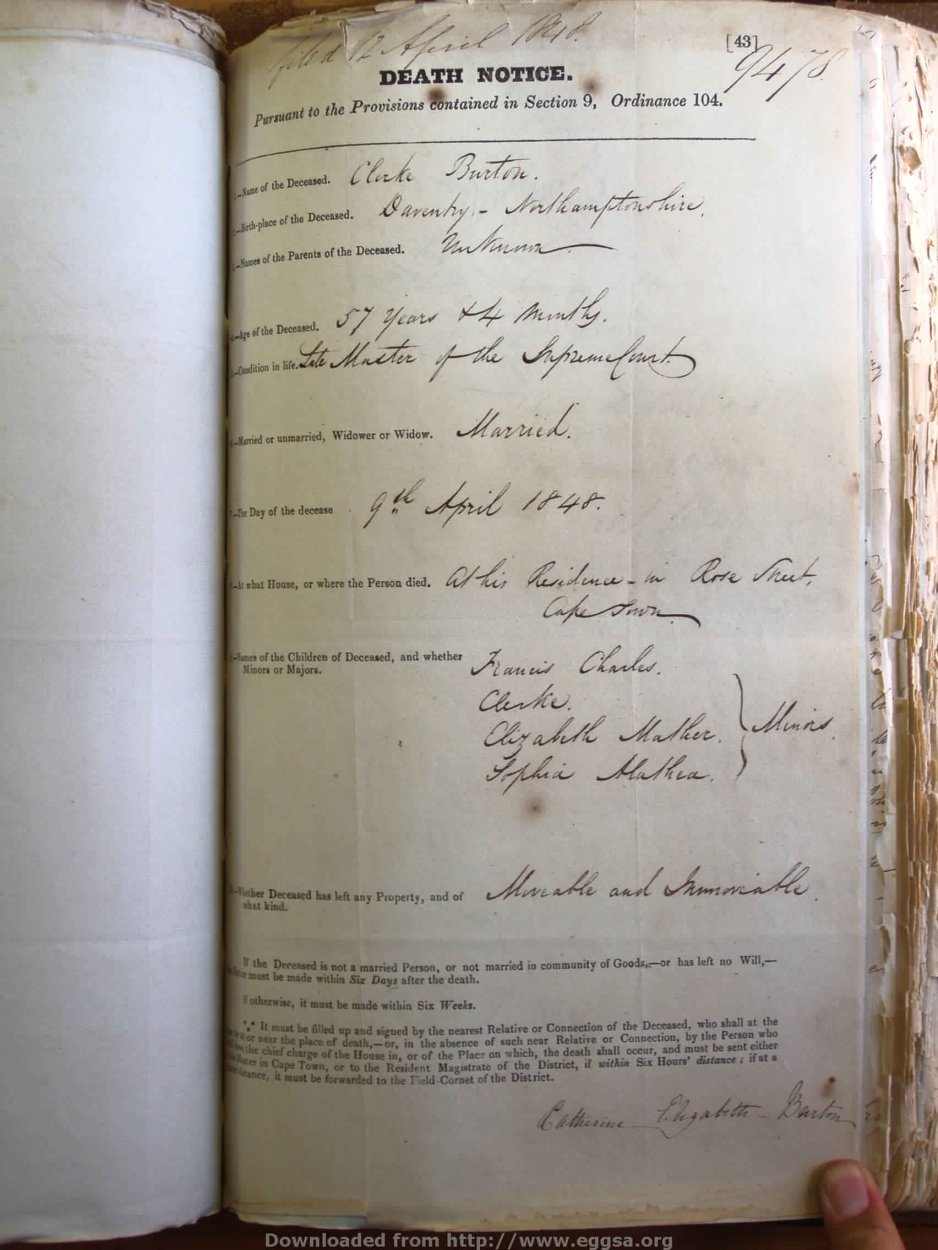 filed 12 April 1848.
[43]
9478.
DEATH NOTICE.
Pursuant to the Provisions contained in Section 9, Ordinance 104.
—Name of the Deceased. Clerke Burton.
—Birth-place of the Deceased. Daventry - Northamptonshire.
—Names of the Parents of the Deceased. Unknown
—Age of the Deceased. 57 Years & 4 Months.
—Condition in life. Late Master of the Supreme Court
—Married or unmarried, Widower or Widow. Married.
—The Day of the decease 9th April 1848.
—At what House, or where the Person died. At his Residence - in Rose Street,
Cape Town
—Names of the Children of Deceased, and whether
Minors or Majors.
Francis Charles.
Clerke.
Elizabeth Mather. Minors.
Sophia Alathea.
—Whether Deceased has left any Property, and of
what kind.
Moveable and Immoveable
If the Deceased is not a married Person, or not married in community of Goods,—or has left no Will,—
must be made within Six Days after the death.
If otherwise, it must be made within Six Weeks.
*** It must be filled up and signed by the nearest Relative or Connection of the Deceased, who shall at the
or near the place of death,—or, in the absence of such near Relative or Connection, by the Person who
the chief charge of the House in, or of the Place on which, the death shall occur, and must be sent either
Master in Cape Town, or to the Resident Magistrate of the District, if within Six Hours' distance; if at a
distance, it must be forwarded to the Field-Cornet of the District.
Catherine Elizabeth Burton
Downloaded from http://www.eggsa.org